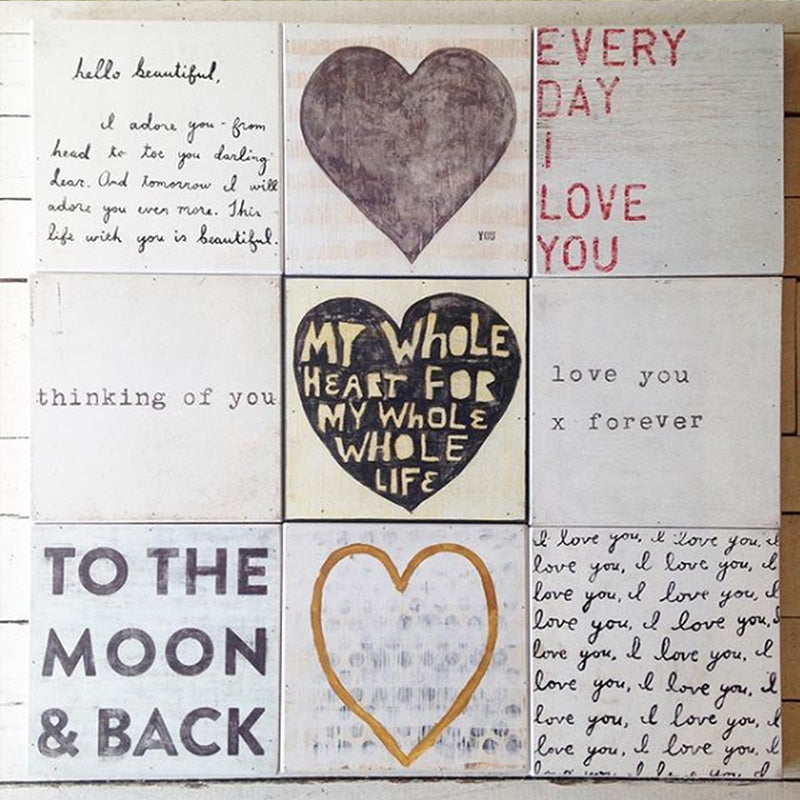 hello beautiful,
I adore you - from
head to toe you darling
dear. And tomorrow I will
adore you even more. This
life with you is beautiful.
YES
EVERY
DAY
I
LOVE
YOU
thinking of you
MY WHOLE
HEART FOR
MY WHOLE
WHOLE
LIFE
love you
x forever
TO THE
MOON
& BACK
I love you, I love you, I
love you, I love you, I
love you, I love you, I
love you, I love you, I
love you, I love you, I
love you, I love you, I
love you, I love you, I
love you, I love you, I